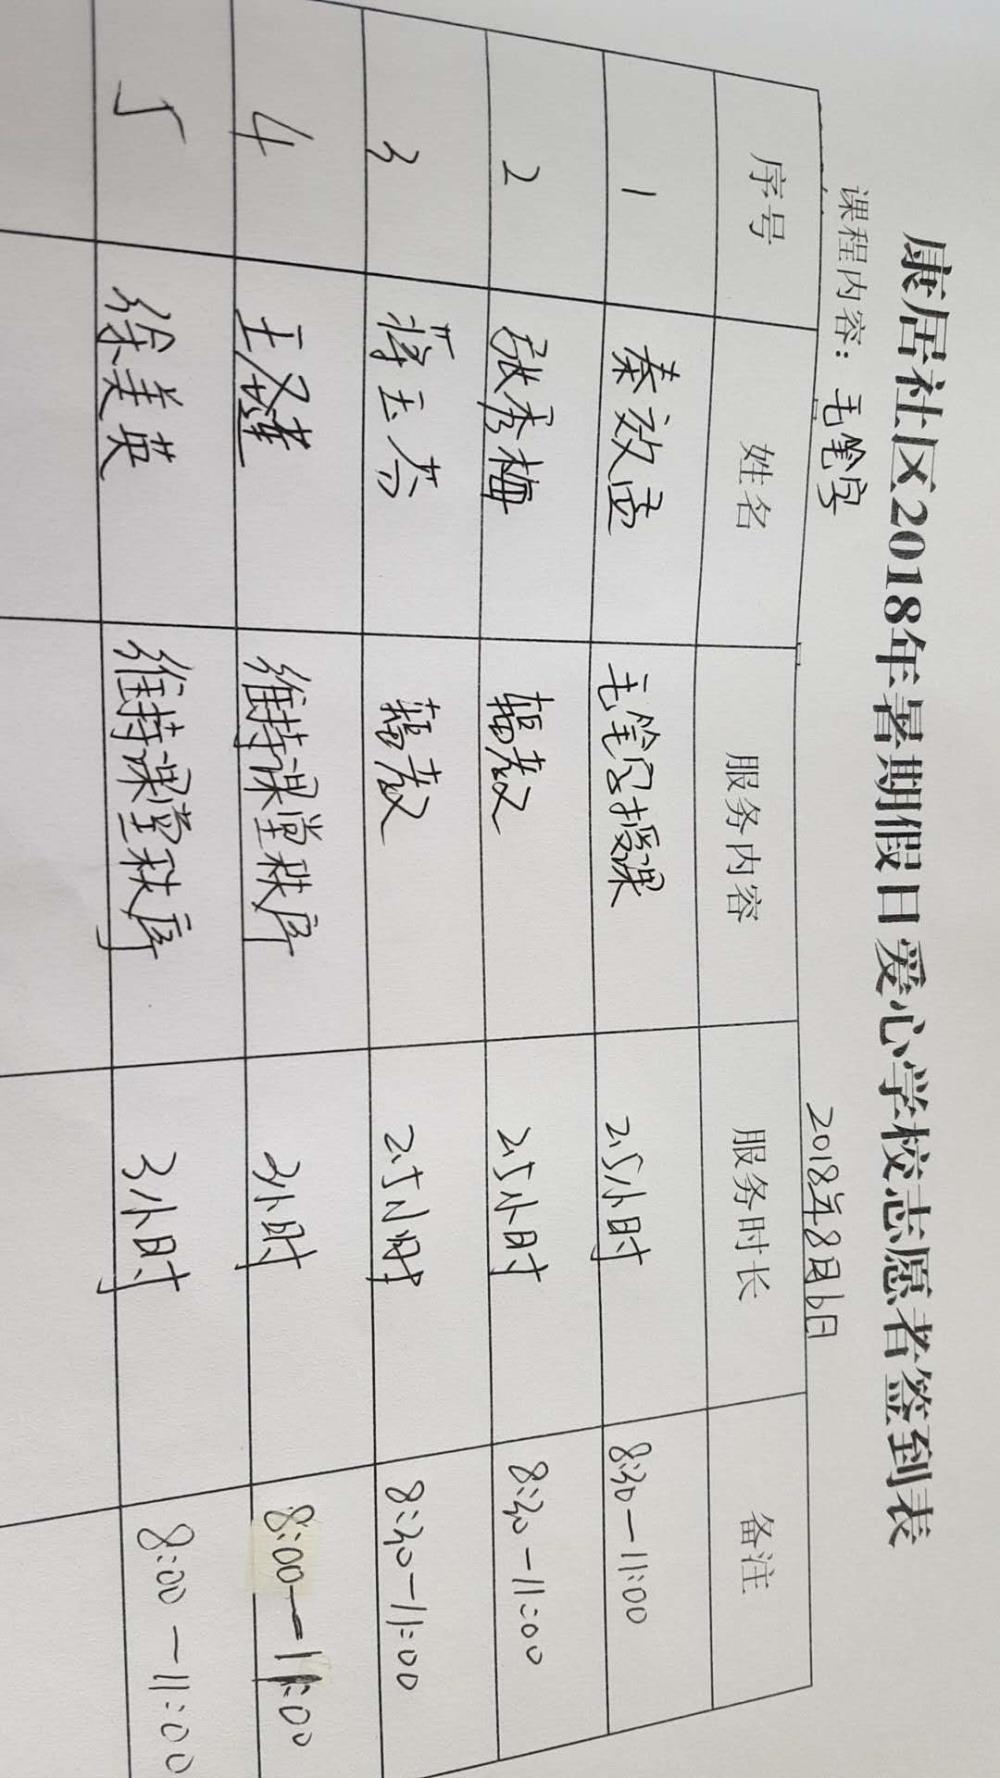 康居社区2018年暑期假日爱心学校志愿者签到表
课程内容：毛笔字 2018年8月6日
序号 姓名 服务内容 服务时长 备注
1 秦效孟 毛笔字授课 2.5小时 8:30—11:00
2 张秀梅 辅教 2.5小时 8:30—11:00
3 蒋玉芬 辅教 2.5小时 8:30—11:00
4 王 维持课堂秩序 3小时 8:00—11:00
5 徐美英 维持课堂秩序 3小时 8:00—11:00